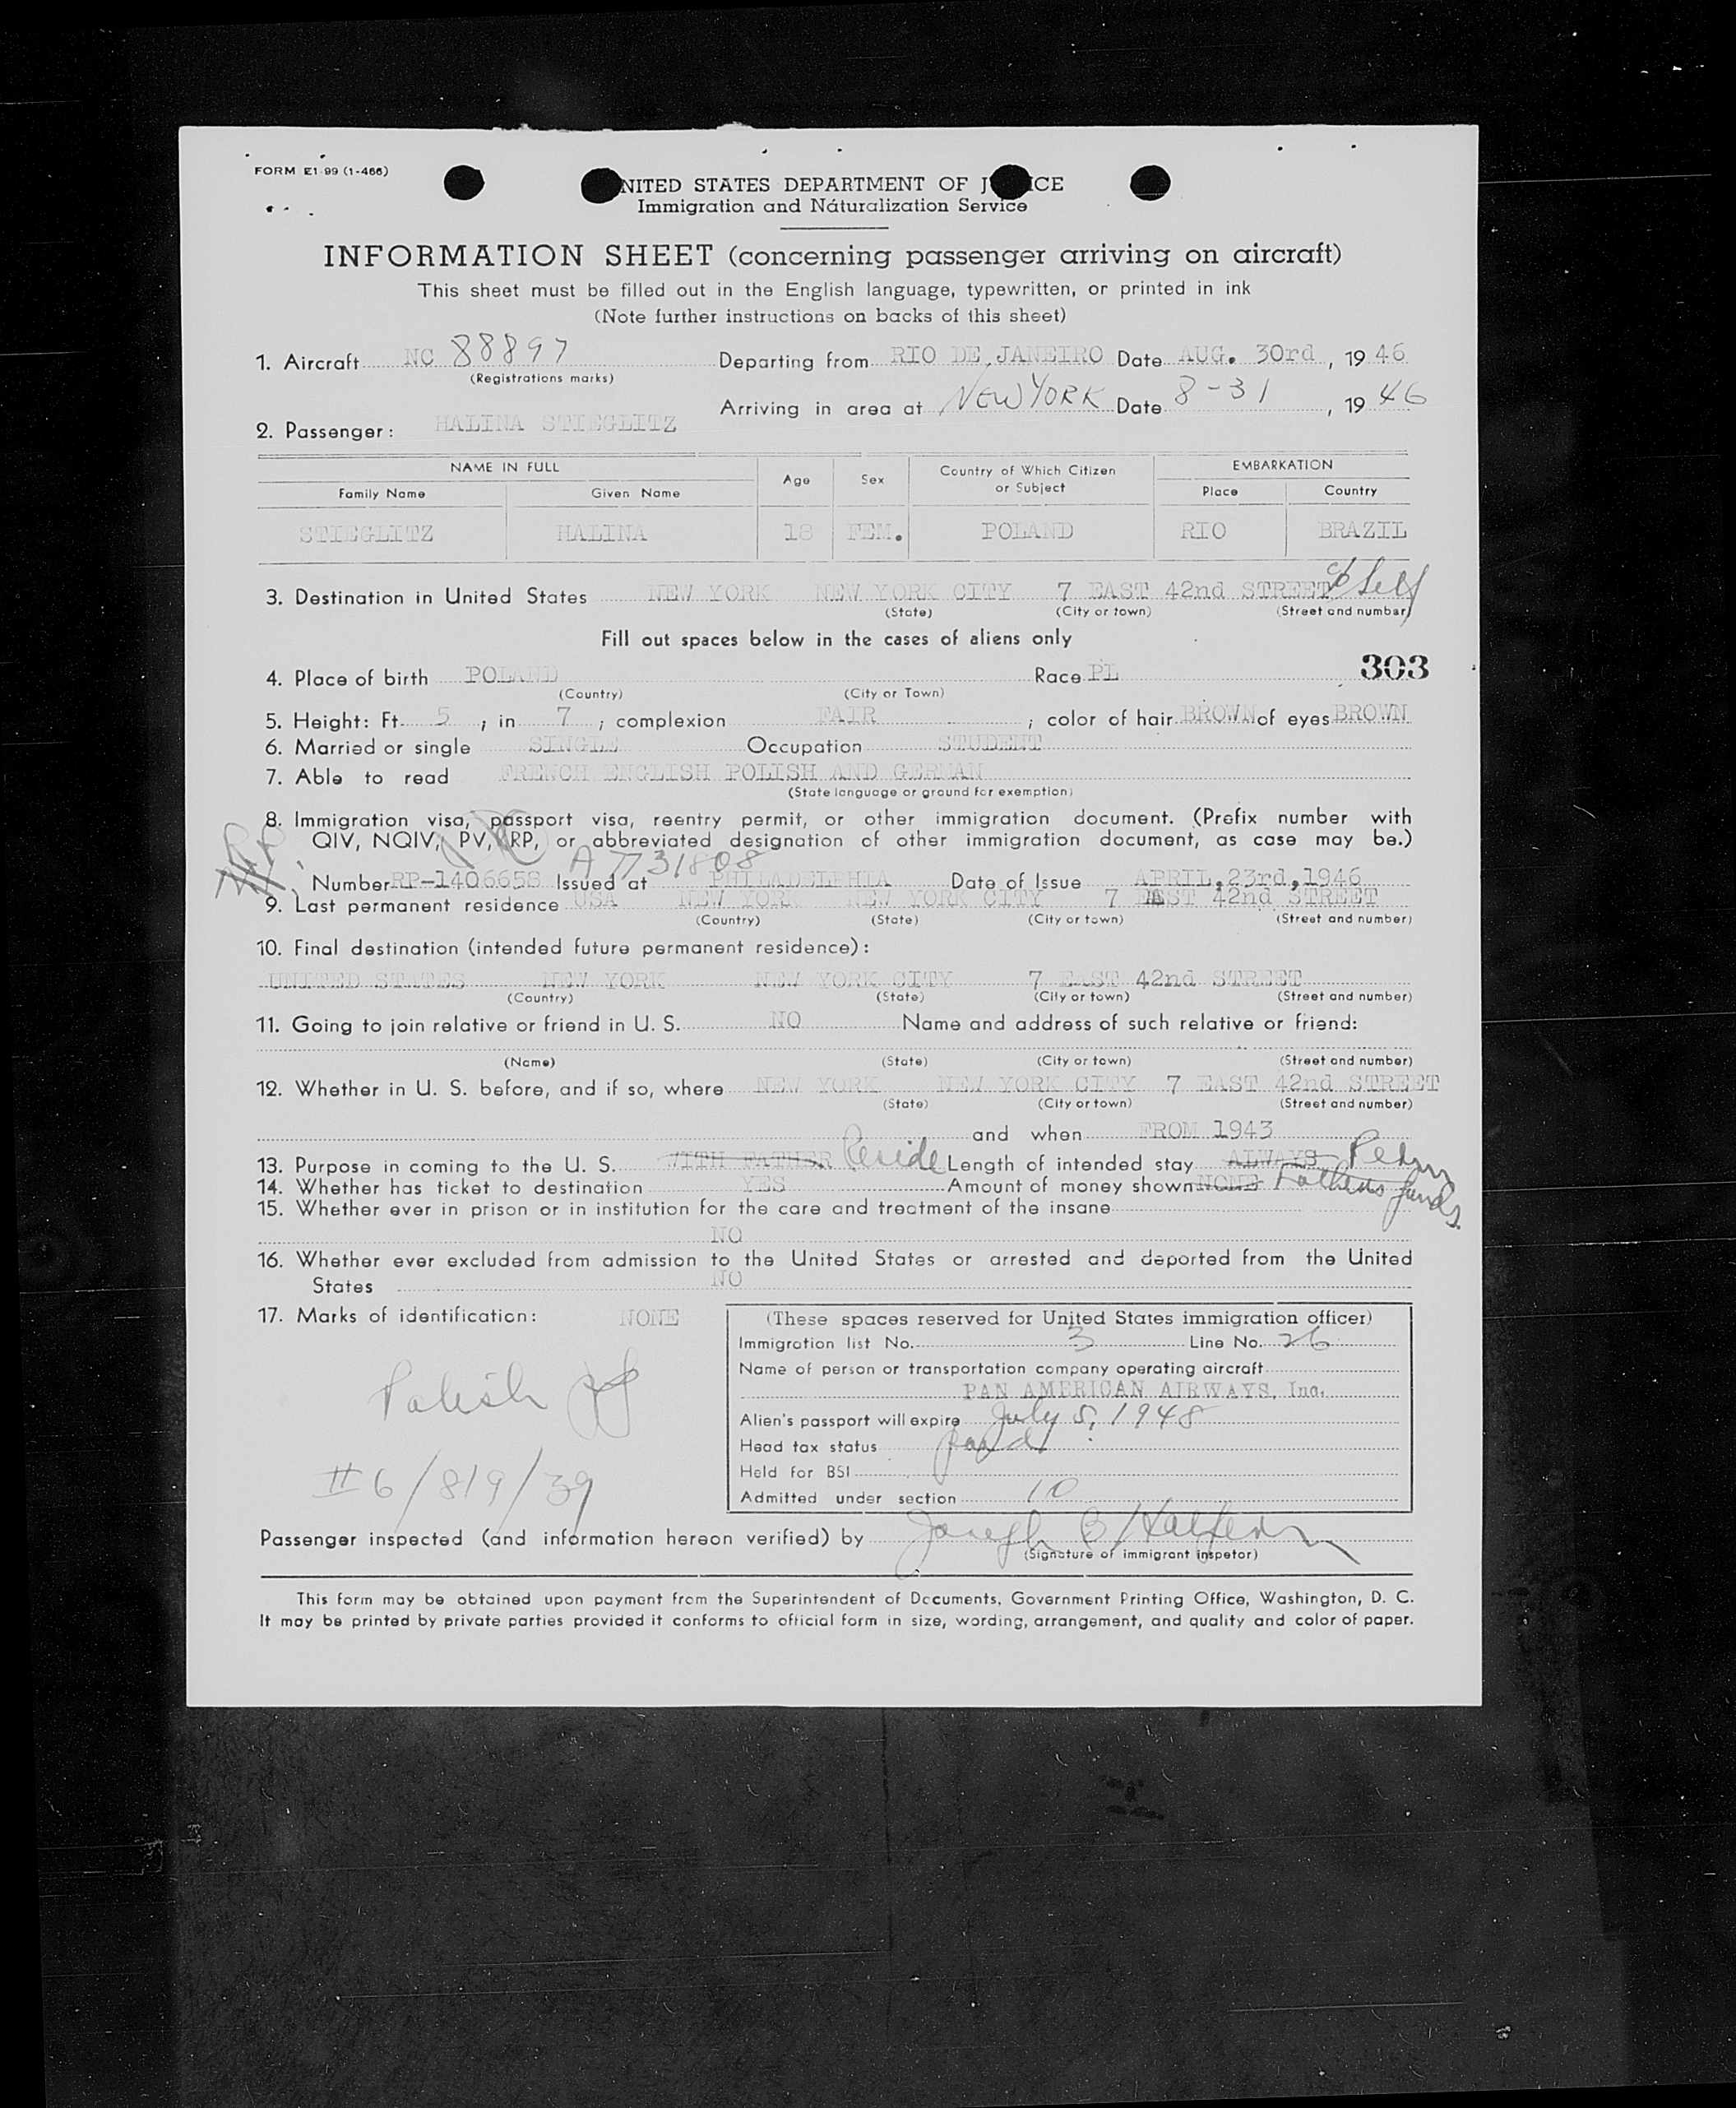 FORM E1-99 (1-466)
NITED STATES DEPARTMENT OF J ICE
Immigration and Naturalization Service
INFORMATION SHEET (concerning passenger arriving on aircraft)
This sheet must be filled out in the English language, typewritten, or printed in ink
(Note further instructions on backs of this sheet)
1. Aircraft NC 88897 Departing from RIO DE JANEIRO Date AUG. 30rd, 19 46
(Registrations marks)
Arriving in area at NEW YORK Date 8-31, 19 46
2. Passenger: HALINA STIEGLITZ
NAME IN FULL Age Sex Country of Which Citizen or Subject EMBARKATION
Family Name Given Name Place Country
STIEGLITZ HALINA 18 FEM. POLAND RIO BRAZIL
3. Destination in United States NEW YORK NEW YORK CITY 7 EAST 42nd STREET c/o Self
(State) (City or town) (Street and number)
Fill out spaces below in the cases of aliens only
303
4. Place of birth POLAND Race PL
(Country) (City or Town)
5. Height: Ft. 5 ; in 7 ; complexion FAIR ; color of hair BROWN of eyes BROWN
6. Married or single SINGLE Occupation STUDENT
7. Able to read FRENCH ENGLISH POLISH AND GERMAN
(State language or ground for exemption)
8. Immigration visa, passport visa, reentry permit, or other immigration document. (Prefix number with
RP QIV, NQIV, PV, RP, or abbreviated designation of other immigration document, as case may be.)
A7731808
Number RP-1406658 Issued at PHILADELPHIA Date of Issue APRIL,23rd,1946
9. Last permanent residence USA NEW YORK NEW YORK CITY 7 EAST 42nd STREET
(Country) (State) (City or town) (Street and number)
10. Final destination (intended future permanent residence):
UNITED STATES NEW YORK NEW YORK CITY 7 EAST 42nd STREET
(Country) (State) (City or town) (Street and number)
11. Going to join relative or friend in U. S. NO Name and address of such relative or friend:
(Name) (State) (City or town) (Street and number)
12. Whether in U. S. before, and if so, where NEW YORK NEW YORK CITY 7 EAST 42nd STREET
(State) (City or town) (Street and number)
and when FROM 1943
13. Purpose in coming to the U. S. WITH FATHER Reside Length of intended stay ALWAYS Perm
14. Whether has ticket to destination YES Amount of money shown NONE Fathers funds.
15. Whether ever in prison or in institution for the care and treatment of the insane
NO
16. Whether ever excluded from admission to the United States or arrested and deported from the United
States NO
17. Marks of identification: NONE
(These spaces reserved for United States immigration officer)
Immigration list No. 3 Line No. 26
Name of person or transportation company operating aircraft
PAN AMERICAN AIRWAYS, Inc.
Polish
Alien's passport will expire July 5, 1948
Head tax status paid
Held for BSI
#6/819/39
Admitted under section 10
Passenger inspected (and information hereon verified) by Joseph B Halfern
(Signature of immigrant inspetor)
This form may be obtained upon payment from the Superintendent of Documents, Government Printing Office, Washington, D. C.
It may be printed by private parties provided it conforms to official form in size, wording, arrangement, and quality and color of paper.